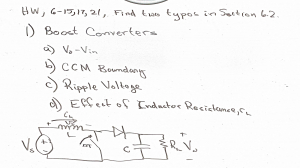 HW, 6-15,17,21, Find two typos in Section 6.2.
1) Boost Converters
a) Vo-Vin
b) CCM Boundary
c) Ripple Voltage
d) Effect of Inductor Resistance, rL
rL
L
Vs
m
C
RL
+
Vo
-